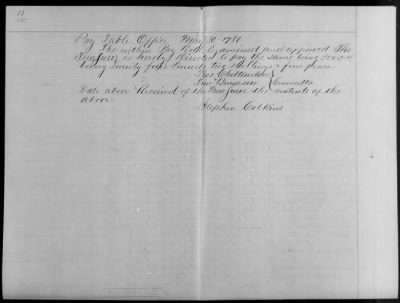 Pay Table Office May 31 1781
The within Pay Role Examined and approved The
Treasurer is hereby Directed to pay the same being
being twenty four pounds two Shillings & four pence
Committee
Date above Received of the Treasurer the contents of the
above
Stephen Collins